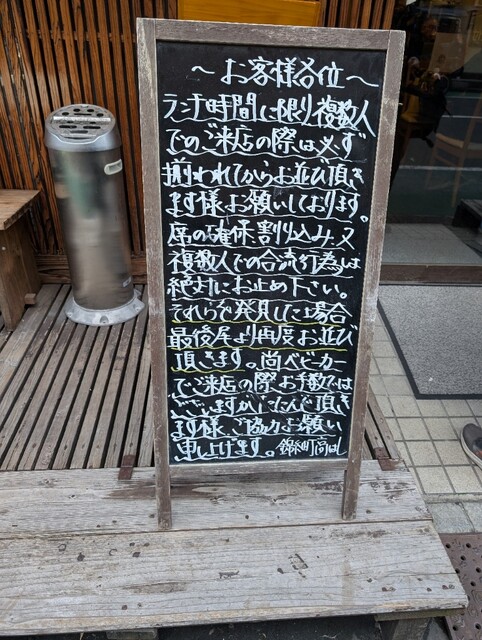 ～お客様各位～
ランチ時間に限り複数人
でのご来店の際は必ず
揃われてからお並び頂き
ます様お願いしております。
席の確保、割り込み、又
複数人での合流行為は
絶対にお止め下さい。
それらで発見した場合
最後尾より再度お並び
頂きます。尚ベビーカー
でご来店の際お手数では
ございますがたたんで頂き
ます様ご協力お願い
申し上げます。錦糸町